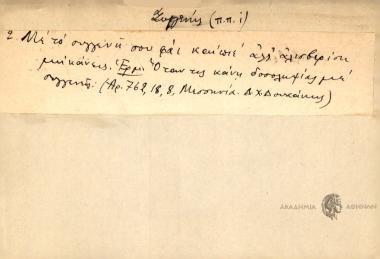 Συγγενής (π.π.ι)
2. Μέ τό συγγενῆ σου φάε καί πιέ ἀλλ' ἀλισβερίσι
μή κάνεις. Ἑρμ. Ὅταν τις κάνη δοσοληψίας μέ
συγγενῆ: (Ἀρ. 762, 18, 8, Μεσσηνία. Δ. Χ. Δουκάκης)
ΑΚΑΔΗΜΙΑ ΑΘΗΝΩΝ